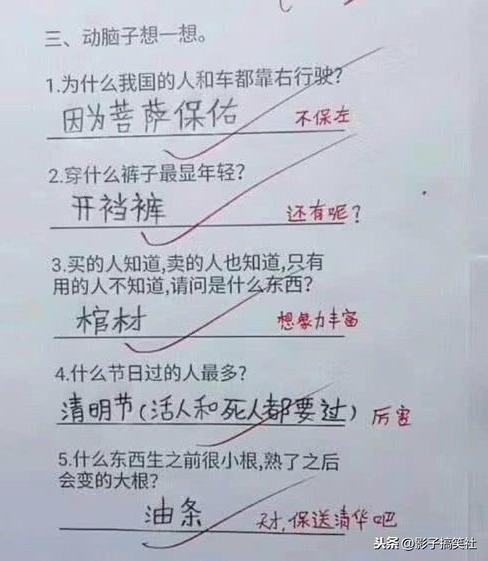 三、动脑子想一想。
1.为什么我国的人和车都靠右行驶?
因为菩萨保佑 不保左
2.穿什么裤子最显年轻?
开裆裤 还有呢?
3.买的人知道,卖的人也知道,只有
用的人不知道,请问是什么东西?
棺材 想象力丰富
4.什么节日过的人最多?
清明节(活人和死人都要过) 厉害
5.什么东西生之前很小根,熟了之后
会变的大根?
油条 天才,保送清华吧
头条 @影子搞笑社